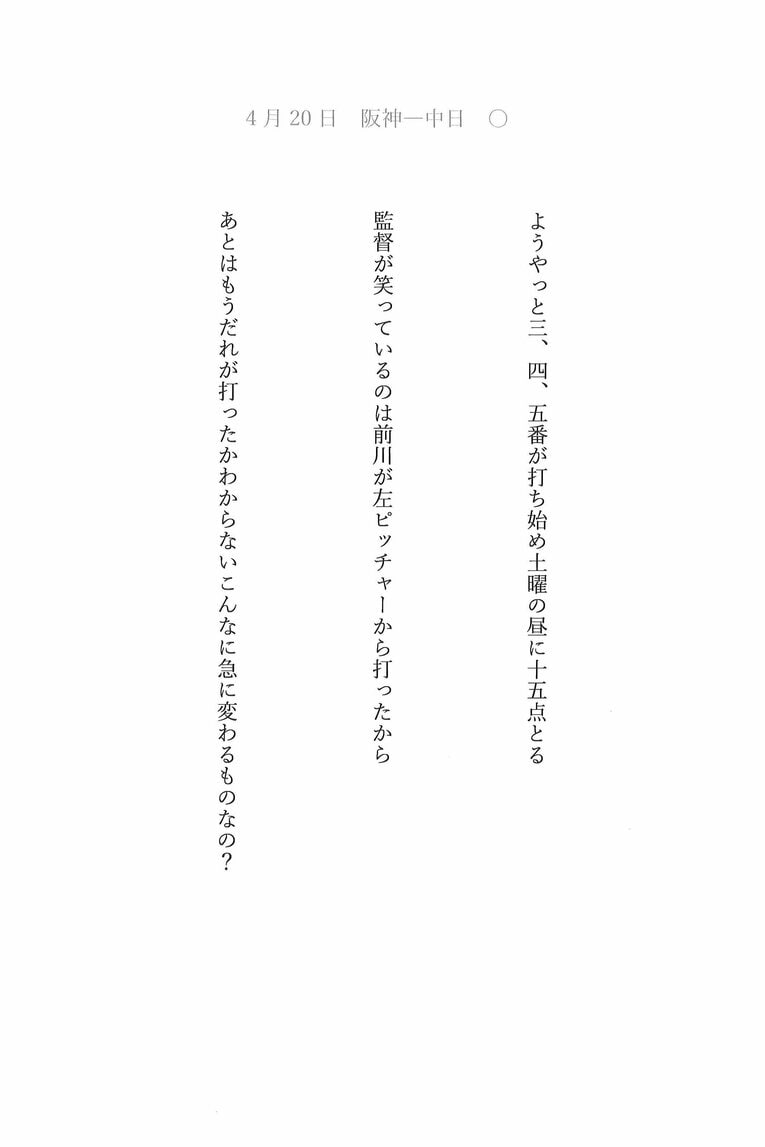 4月20日　阪神―中日　○
ようやっと三、四、五番が打ち始め土曜の昼に十五点とる
監督が笑っているのは前川が左ピッチャーから打ったから
あとはもうだれが打ったかわからないこんなに急に変わるものなの？